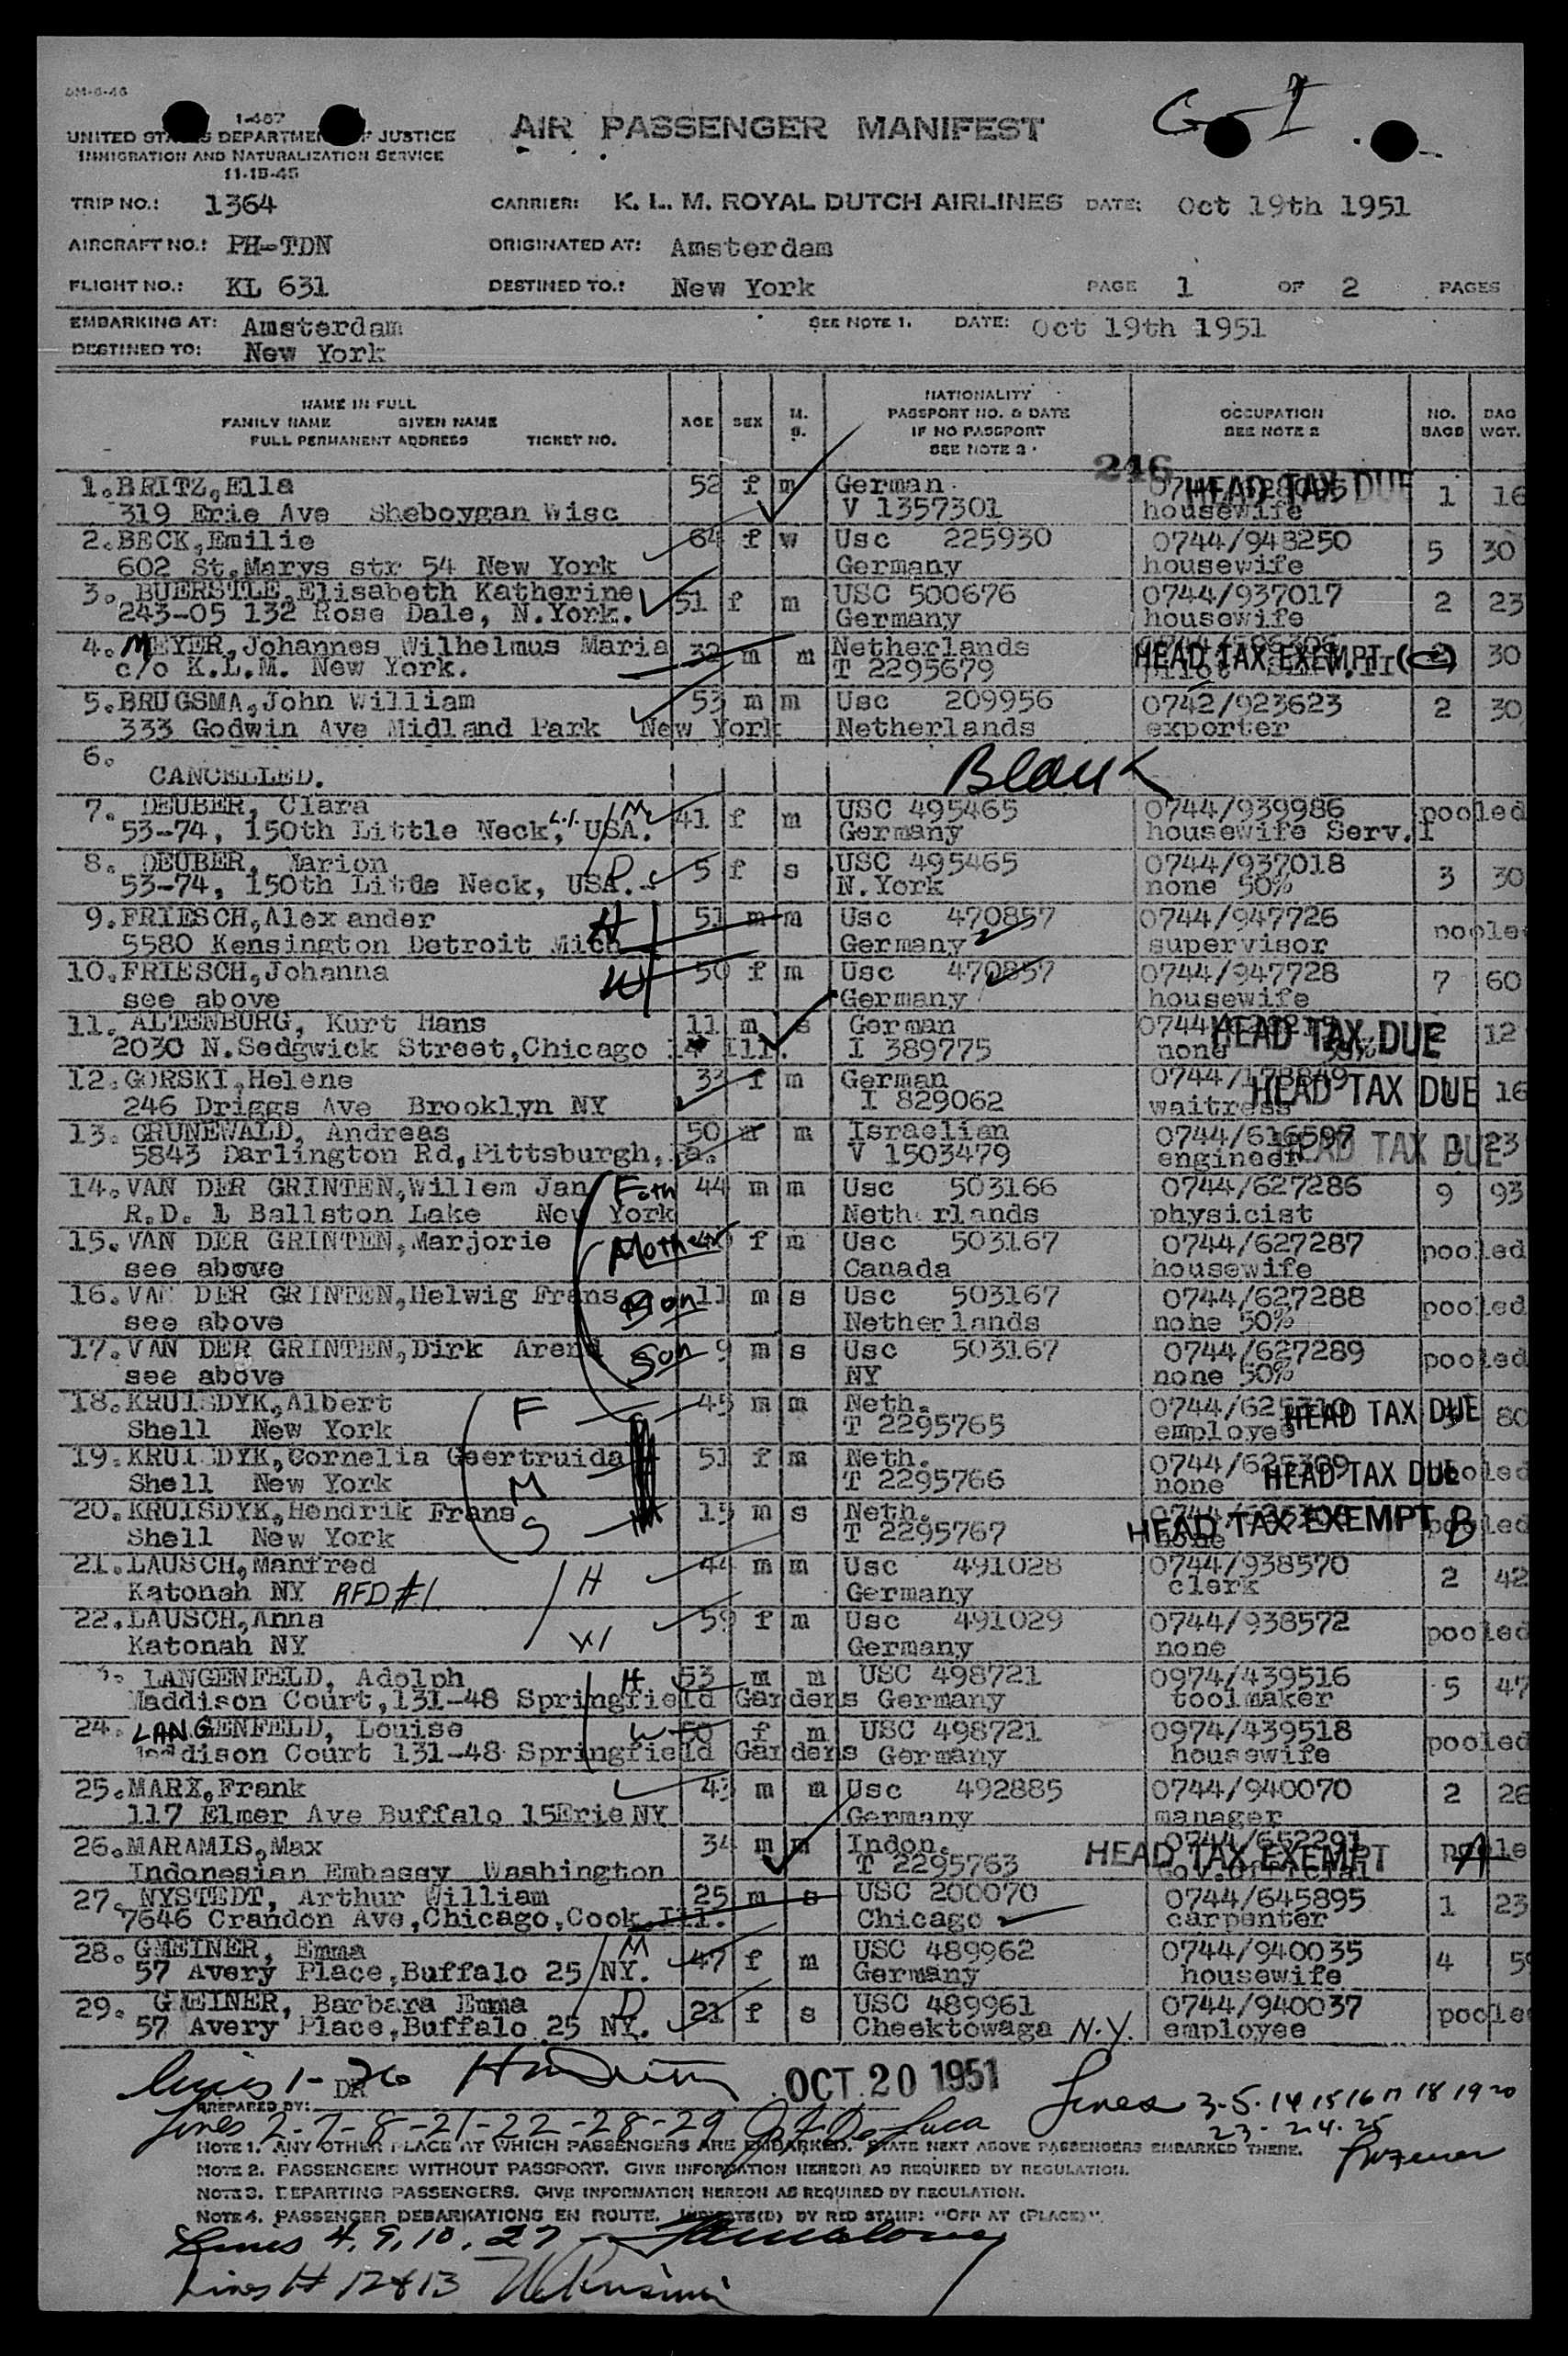 1-467
UNITED STATES DEPARTMENT OF JUSTICE
IMMIGRATION AND NATURALIZATION SERVICE
11-15-45
AIR PASSENGER MANIFEST
G-I
TRIP NO.: 1364 CARRIER: K. L. M. ROYAL DUTCH AIRLINES DATE: Oct 19th 1951
AIRCRAFT NO.: PH-TDN ORIGINATED AT: Amsterdam
FLIGHT NO.: KL 631 DESTINED TO.: New York PAGE 1 OF 2 PAGES
EMBARKING AT: Amsterdam SEE NOTE 1. DATE: Oct 19th 1951
DESTINED TO: New York
NAME IN FULL
FAMILY NAME GIVEN NAME
FULL PERMANENT ADDRESS TICKET NO.
AGE SEX M. S.
NATIONALITY
PASSPORT NO. & DATE
IF NO PASSPORT
SEE NOTE 3
OCCUPATION
SEE NOTE 2
NO. BAGS BAG WGT.
246
1. BRITZ, Ella 52 f m German HEAD TAX DUE 1 16
319 Erie Ave Sheboygan Wisc V 1357301 housewife
2. BECK, Emilie 64 f w Usc 225930 0744/948250 5 30
602 St. Marys str 54 New York Germany housewife
3. BUERSTLE, Elisabeth Katherine 51 f m USC 500676 0744/937017 2 23
243-05 132 Rose Dale, N.York. Germany housewife
4. MEYER, Johannes Wilhelmus Maria 32 m m Netherlands HEAD TAX EXEMPT 30
c/o K.L.M. New York. T 2295679 pilot
5. BRUGSMA, John William 53 m m Usc 209956 0742/923623 2 30
333 Godwin Ave Midland Park New York Netherlands exporter
6. CANCELLED. Blank
7. DEUBER, Clara M 41 f m USC 495465 0744/939986 pooled
53-74, 150th Little Neck, L.I. USA. Germany housewife Serv.I
8. DEUBER, Marion D 5 f s USC 495465 0744/937018 3 30
53-74, 150th Little Neck, USA. N.York none 50%
9. FRIESCH, Alexander H 51 m m Usc 470857 0744/947726 pooled
5580 Kensington Detroit Mich Germany supervisor
10. FRIESCH, Johanna W 50 f m Usc 470857 0744/947728 7 60
see above Germany housewife
11. ALTENBURG, Kurt Hans 11 m s German HEAD TAX DUE 12
2030 N.Sedgwick Street, Chicago 14 Ill. I 389775 none
12. GORSKI, Helene 33 f m German HEAD TAX DUE 16
246 Driggs Ave Brooklyn NY I 829062 waitress
13. GRUNEWALD, Andreas 50 m m Israelian 0744/616597 HEAD TAX DUE 23
5843 Darlington Rd, Pittsburgh, Pa. V 1503479 engineer
14. VAN DER GRINTEN, Willem Jan Fath 44 m m Usc 503166 0744/627286 9 93
R.D. 1 Ballston Lake New York Netherlands physicist
15. VAN DER GRINTEN, Marjorie Mother f m Usc 503167 0744/627287 pooled
see above Canada housewife
16. VAN DER GRINTEN, Helwig Frans Son 11 m s Usc 503167 0744/627288 pooled
see above Netherlands none 50%
17. VAN DER GRINTEN, Dirk Arend Son 9 m s Usc 503167 0744/627289 pooled
see above NY none 50%
18. KRUISDYK, Albert F 45 m m Neth. HEAD TAX DUE 80
Shell New York T 2295765 employee
19. KRUISDYK, Cornelia Geertruida M 51 f m Neth. HEAD TAX DUE pooled
Shell New York T 2295766 none
20. KRUISDYK, Hendrik Frans S 15 m s Neth. HEAD TAX EXEMPT B pooled
Shell New York T 2295767 none
21. LAUSCH, Manfred H 44 m m Usc 491028 0744/938570 2 42
Katonah NY RFD #1 Germany clerk
22. LAUSCH, Anna W 59 f m Usc 491029 0744/938572 pooled
Katonah NY Germany none
LANGENFELD, Adolph H 53 m m USC 498721 0974/439516 5 47
Maddison Court, 131-48 Springfield Gardens Germany toolmaker
24. LANGENFELD, Louise W 50 f m USC 498721 0974/439518 pooled
Maddison Court 131-48 Springfield Gardens Germany housewife
25. MARX, Frank 43 m m Usc 492885 0744/940070 2 26
117 Elmer Ave Buffalo 15 Erie NY Germany manager
26. MARAMIS, Max 34 m m Indon. 0744/652291 HEAD TAX EXEMPT A pooled
Indonesian Embassy Washington T 2295763 Gov.Official
27. NYSTEDT, Arthur William 25 m s USC 200070 0744/645895 1 23
7646 Crandon Ave, Chicago, Cook, Ill. Chicago carpenter
28. GMEINER, Emma M 47 f m USC 489962 0744/940035 4
57 Avery Place, Buffalo 25 NY. Germany housewife
29. GMEINER, Barbara Emma D 21 f s USC 489961 0744/940037 pooled
57 Avery Place, Buffalo 25 NY. Cheektowaga N.Y. employee
Lines 1-26 OCT 20 1951 Lines 3-5-14 15 16 17 18 19 20
23-24.25
PREPARED BY:
Lines 2-7-8-21-22-28-29
NOTE 1. ANY OTHER PLACE AT WHICH PASSENGERS ARE EMBARKED. STATE NEXT ABOVE PASSENGERS EMBARKED THERE.
NOTE 2. PASSENGERS WITHOUT PASSPORT. GIVE INFORMATION HEREON AS REQUIRED BY REGULATION.
NOTE 3. DEPARTING PASSENGERS. GIVE INFORMATION HEREON AS REQUIRED BY REGULATION.
NOTE 4. PASSENGER DEBARKATIONS EN ROUTE. INDICATE(D) BY RED STAMP: "OFF AT (PLACE)".
Lines 4, 9, 10, 27
Lines # 12 & 13